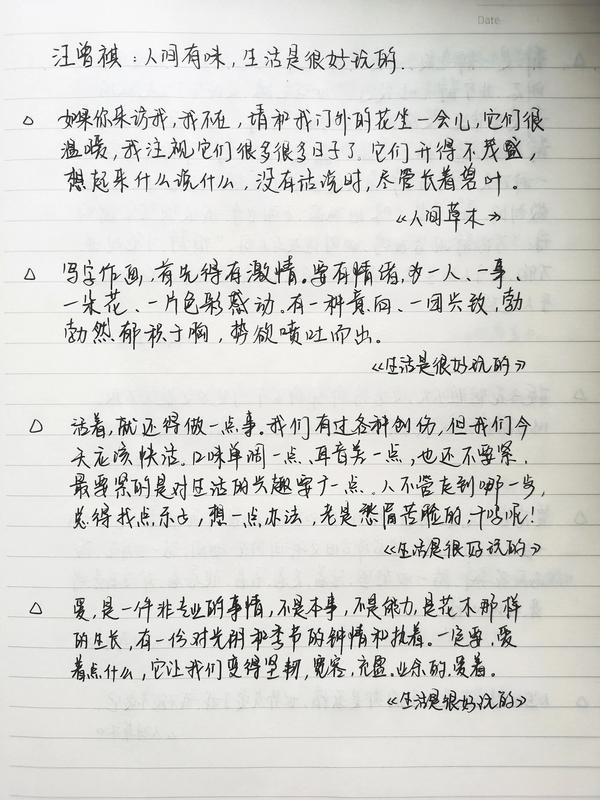 Date
汪曾祺：人间有味，生活是很好玩的.
△ 如果你来访我，我不在，请和我门外的花坐一会儿，它们很
温暖，我注视它们很多很多日子了。它们开得不茂盛，
想起来什么说什么，没有话说时，尽管长着碧叶。
《人间草木》
△ 写字作画，首先得有激情。要有情绪，为一人、一事、
一朵花、一片色彩感动。有一种意向、一团兴致，勃
勃然郁积于胸，势欲喷吐而出。
《生活是很好玩的》
△ 活着，就还得做一点事。我们有过各种创伤，但我们今
天应该快活。口味单调一点、耳音差一点，也还不要紧.
最要紧的是对生活的兴趣要广一点。人不管走到哪一步，
总得找点乐子，想一点办法，老是愁眉苦脸的，干吗呢！
《生活是很好玩的》
△ 爱，是一件非专业的事情，不是本事，不是能力，是花木那样
的生长，有一份对光阴和季节的钟情和执着。一定要，爱
着点什么，它让我们变得坚韧，宽容，充盈。业余的，爱着。
《生活是很好玩的》